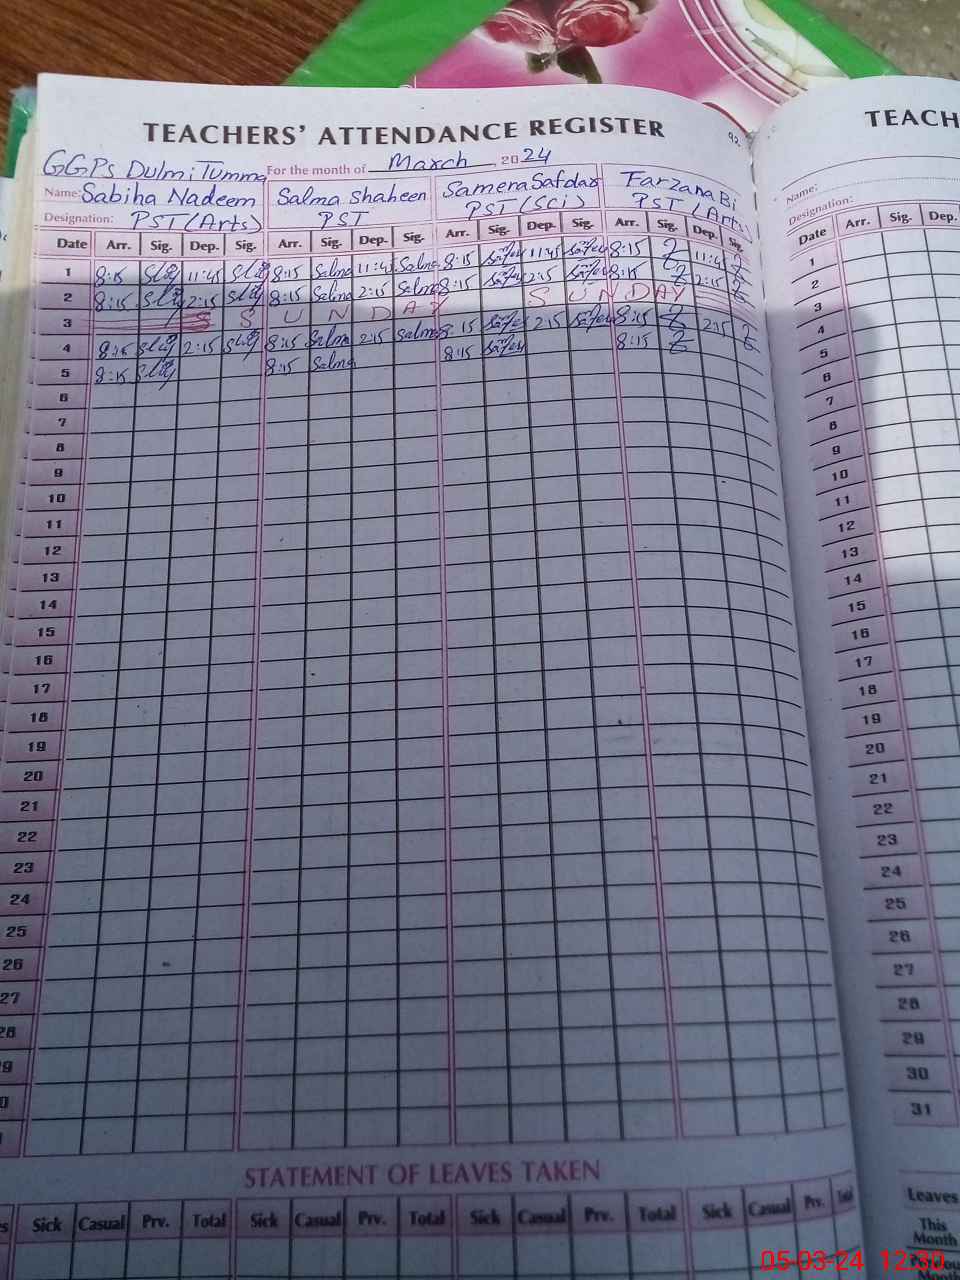 TEACHERS' ATTENDANCE REGISTER
92
GGPS Dulmi Tumma For the month of March, 2024
Name: Sabiha Nadeem Salma Shaheen Samera Safdar Farzana Bi
Designation: PST (Arts) PST PST (Sci) PST (Arts)
Date Arr. Sig. Dep. Sig. Arr. Sig. Dep. Sig. Arr. Sig. Dep. Sig. Arr. Sig. Dep. Sig.
1 8:15 11:45 8:15 Salma 11:45 Salma 8:15 11:45 8:15 11:45
2 8:15 2:15 8:15 Salma 2:15 Salma 8:15 2:15 8:15 2:15
3 SUNDAY SUNDAY
4 8:15 2:15 8:15 Salma 2:15 Salma 8:15 2:15 8:15 2:15
5 8:15 8:15 Salma 8:15 8:15
6
7
8
9
10
11
12
13
14
15
16
17
18
19
20
21
22
23
24
25
26
27
28
9
0
STATEMENT OF LEAVES TAKEN
Sick Casual Prv. Total Sick Casual Prv. Total Sick Casual Prv. Total Sick Casual Prv. Total
TEACH
Name:
Designation:
Date Arr. Sig. Dep.
1
2
3
4
5
6
7
8
9
10
11
12
13
14
15
16
17
18
19
20
21
22
23
24
25
26
27
28
29
30
31
Leaves
This
Month
05-03-24 12:30